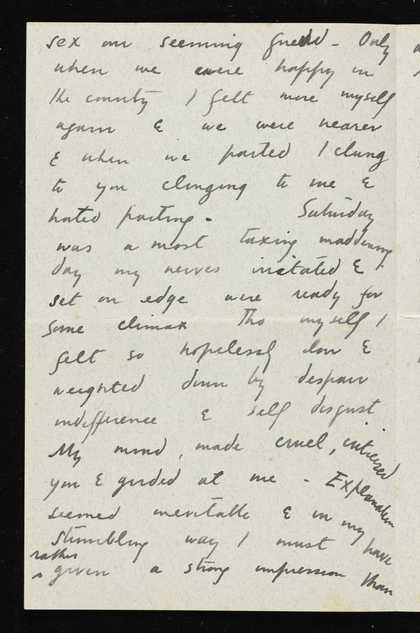 sex our seeming Only
when we were happy in
the country I felt more myself
again & we were nearer
& when we parted I clung
to you clinging to me &
hated parting. Saturday
was a most taxing maddening
day my nerves irritated &
set on edge were ready for
some climax Tho myself I
felt so hopelessly low &
weighted down by despair
indifference & self disgust
My mind, made cruel, criticised
you & at me - Explanation
seemed inevitable & in my
stumbling way I must have
rather
given a strong impression than